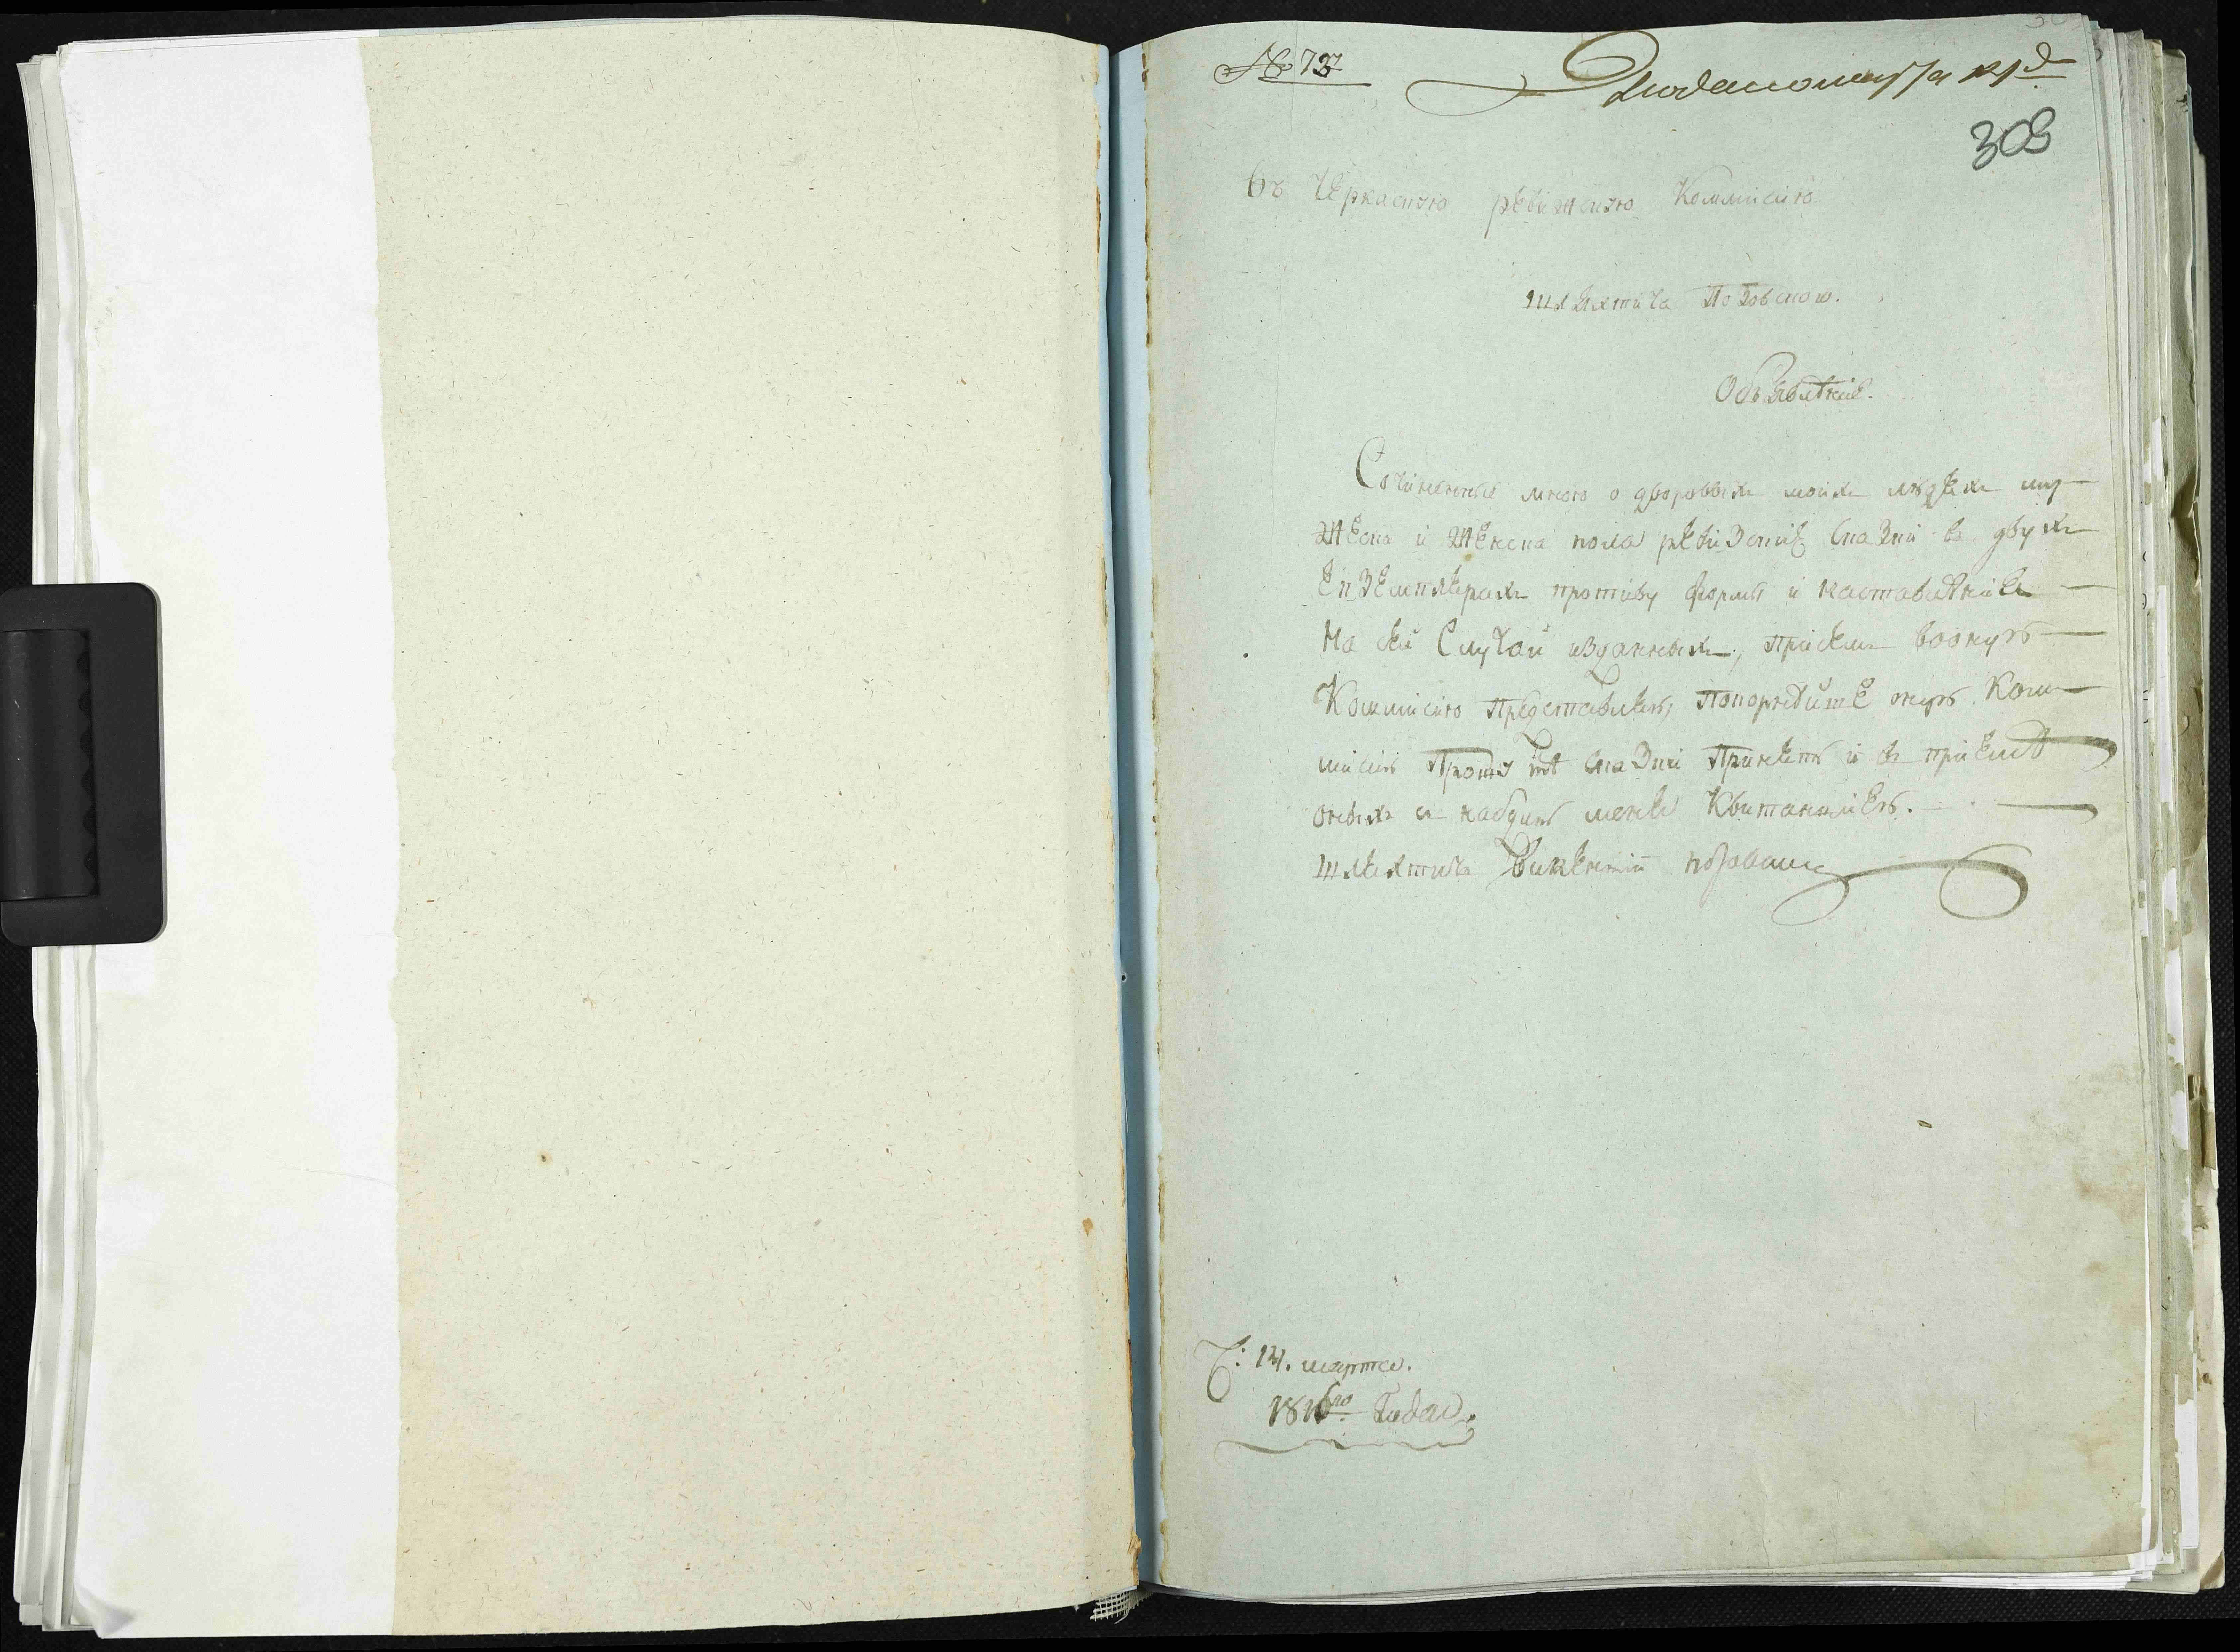 № 737
309
Въ Черкаскую ревижскую Коммисию
шляхтича Позовскою.
Объявление.
Сочиненные мною о дворовыхъ моихъ людехъ му-
жеска и женска пола ревизские сказки въ двухъ
екземплярахъ противу формы и наставлениевъ
на сей Случай изданныхъ, присемъ вооную
Коммисию Представляя, Покорнейше оную Ком-
мисию Прошу те сказки Принять и въ приеме
оныхъ снабдить меня Квитанциею.
шляхтичъ Викентий
14. марта.
1816го Года